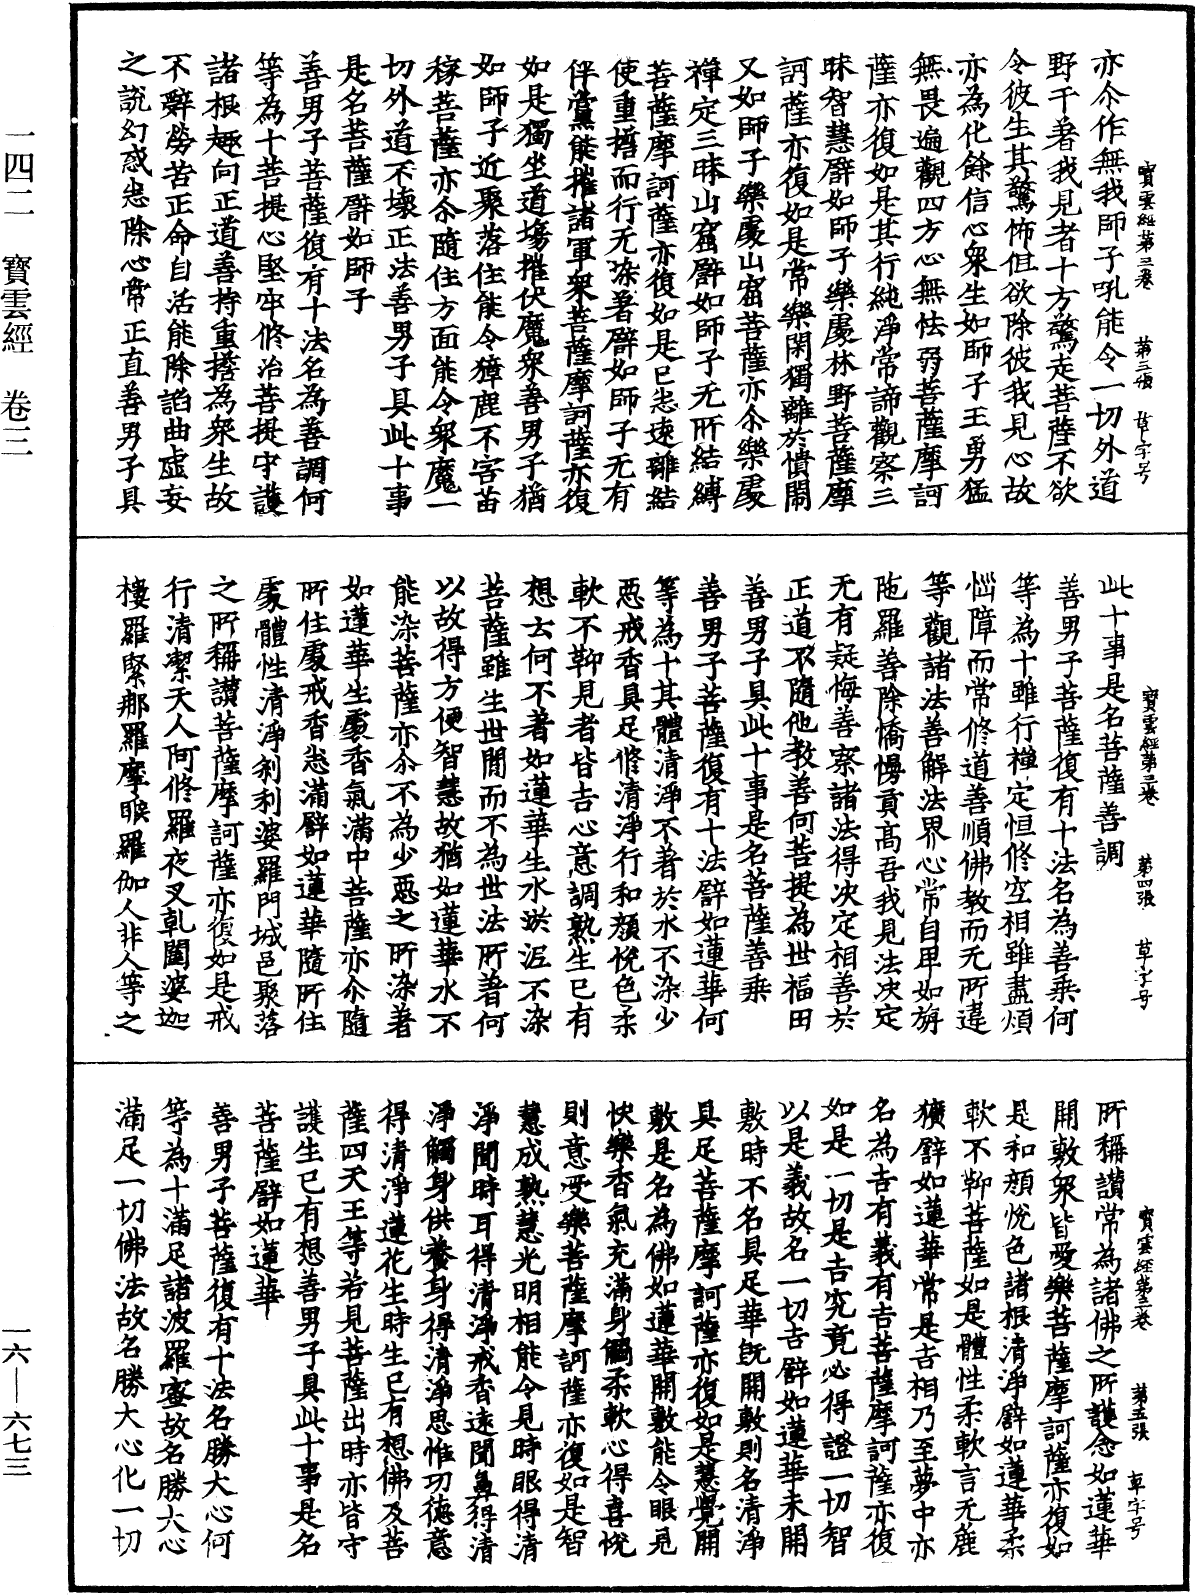 亦尒作無我師子吼能令一切外道
野干著我見者十方驚走菩薩不欲
令彼生其驚怖但欲除彼我見心故
亦為化餘信心衆生如師子王勇猛
無畏遍觀四方心無怯弱菩薩摩訶
薩亦復如是其行純淨常諦觀察三
昧智慧譬如師子樂處林野菩薩摩
訶薩亦復如是常樂閑獨離於憒閙
又如師子樂處山窟菩薩亦尒樂處
禪定三昧山窟譬如師子无所結縛
菩薩摩訶薩亦復如是已悉遠離結
使重擔而行无染著譬如師子无有
伴黨能摧諸軍衆菩薩摩訶薩亦復
如是獨坐道場摧伏魔衆善男子猶
如師子近聚落住能令獐鹿不害苗
稼菩薩亦尒隨住方面能令衆魔一
切外道不壞正法善男子具此十事
是名菩薩譬如師子
善男子菩薩復有十法名為善調何
等為十菩提心堅牢修治菩提守護
諸根趣向正道善持重擔為衆生故
不辭勞苦正命自活能除諂曲虛妄
之說幻惑悉除心常正直善男子具
寶雲經第三卷 第三張 草字号
此十事是名菩薩善調
善男子菩薩復有十法名為善乘何
等為十雖行禪定恒修空相雖盡煩
惱障而常修道善順佛教而无所違
等觀諸法善解法界心常自卑如旃
陁羅善除憍慢貢高吾我見法決定
无有疑悔善察諸法得決定相善於
正道不隨他教善向菩提為世福田
善男子具此十事是名菩薩善乘
善男子菩薩復有十法譬如蓮華何
等為十其體清淨不著於水不染少
惡戒香具足修清淨行和顏悅色柔
軟不䩕見者皆吉心意調熟生已有
想云何不著如蓮華生水淤泥不染
菩薩雖生世間而不為世法所著何
以故得方便智慧故猶如蓮華水不
能染菩薩亦尒不為少惡之所染著
如蓮華生處香氣滿中菩薩亦尒隨
所住處戒香悉滿譬如蓮華隨所住
處體性清淨剎利婆羅門城邑聚落
之所稱讚菩薩摩訶薩亦復如是戒
行清潔天人阿修羅夜叉乹闥婆迦
樓羅緊那羅摩睺羅伽人非人等之
寶雲經第三卷 第四張 草字号
所稱讚常為諸佛之所護念如蓮華
開敷衆皆愛樂菩薩摩訶薩亦復如
是和顏悅色諸根清淨譬如蓮華柔
軟不䩕菩薩如是體性柔軟言无麁
獷譬如蓮華常是吉相乃至夢中亦
名為吉有義有吉菩薩摩訶薩亦復
如是一切是吉究竟必得證一切智
以是義故名一切吉譬如蓮華未開
敷時不名具足華既開敷則名清淨
具足菩薩摩訶薩亦復如是慧覺開
敷是名為佛如蓮華開敷能令眼見
快樂香氣充滿身觸柔軟心得喜悅
則意受樂菩薩摩訶薩亦復如是智
慧成熟慧光明相能令見時眼得清
淨聞時耳得清淨戒香遠聞鼻得清
淨觸身供養身得清淨思惟功德意
得清淨蓮花生時生已有想佛及菩
薩四天王等若見菩薩出時亦皆守
護生已有想善男子具此十事是名
菩薩譬如蓮華
善男子菩薩復有十法名勝大心何
等為十滿足諸波羅蜜故名勝大心
滿足一切佛法故名勝大心化一切
寶雲經第三卷 第五張 草字号
一四二 寶雲經 卷三
一六—六七三